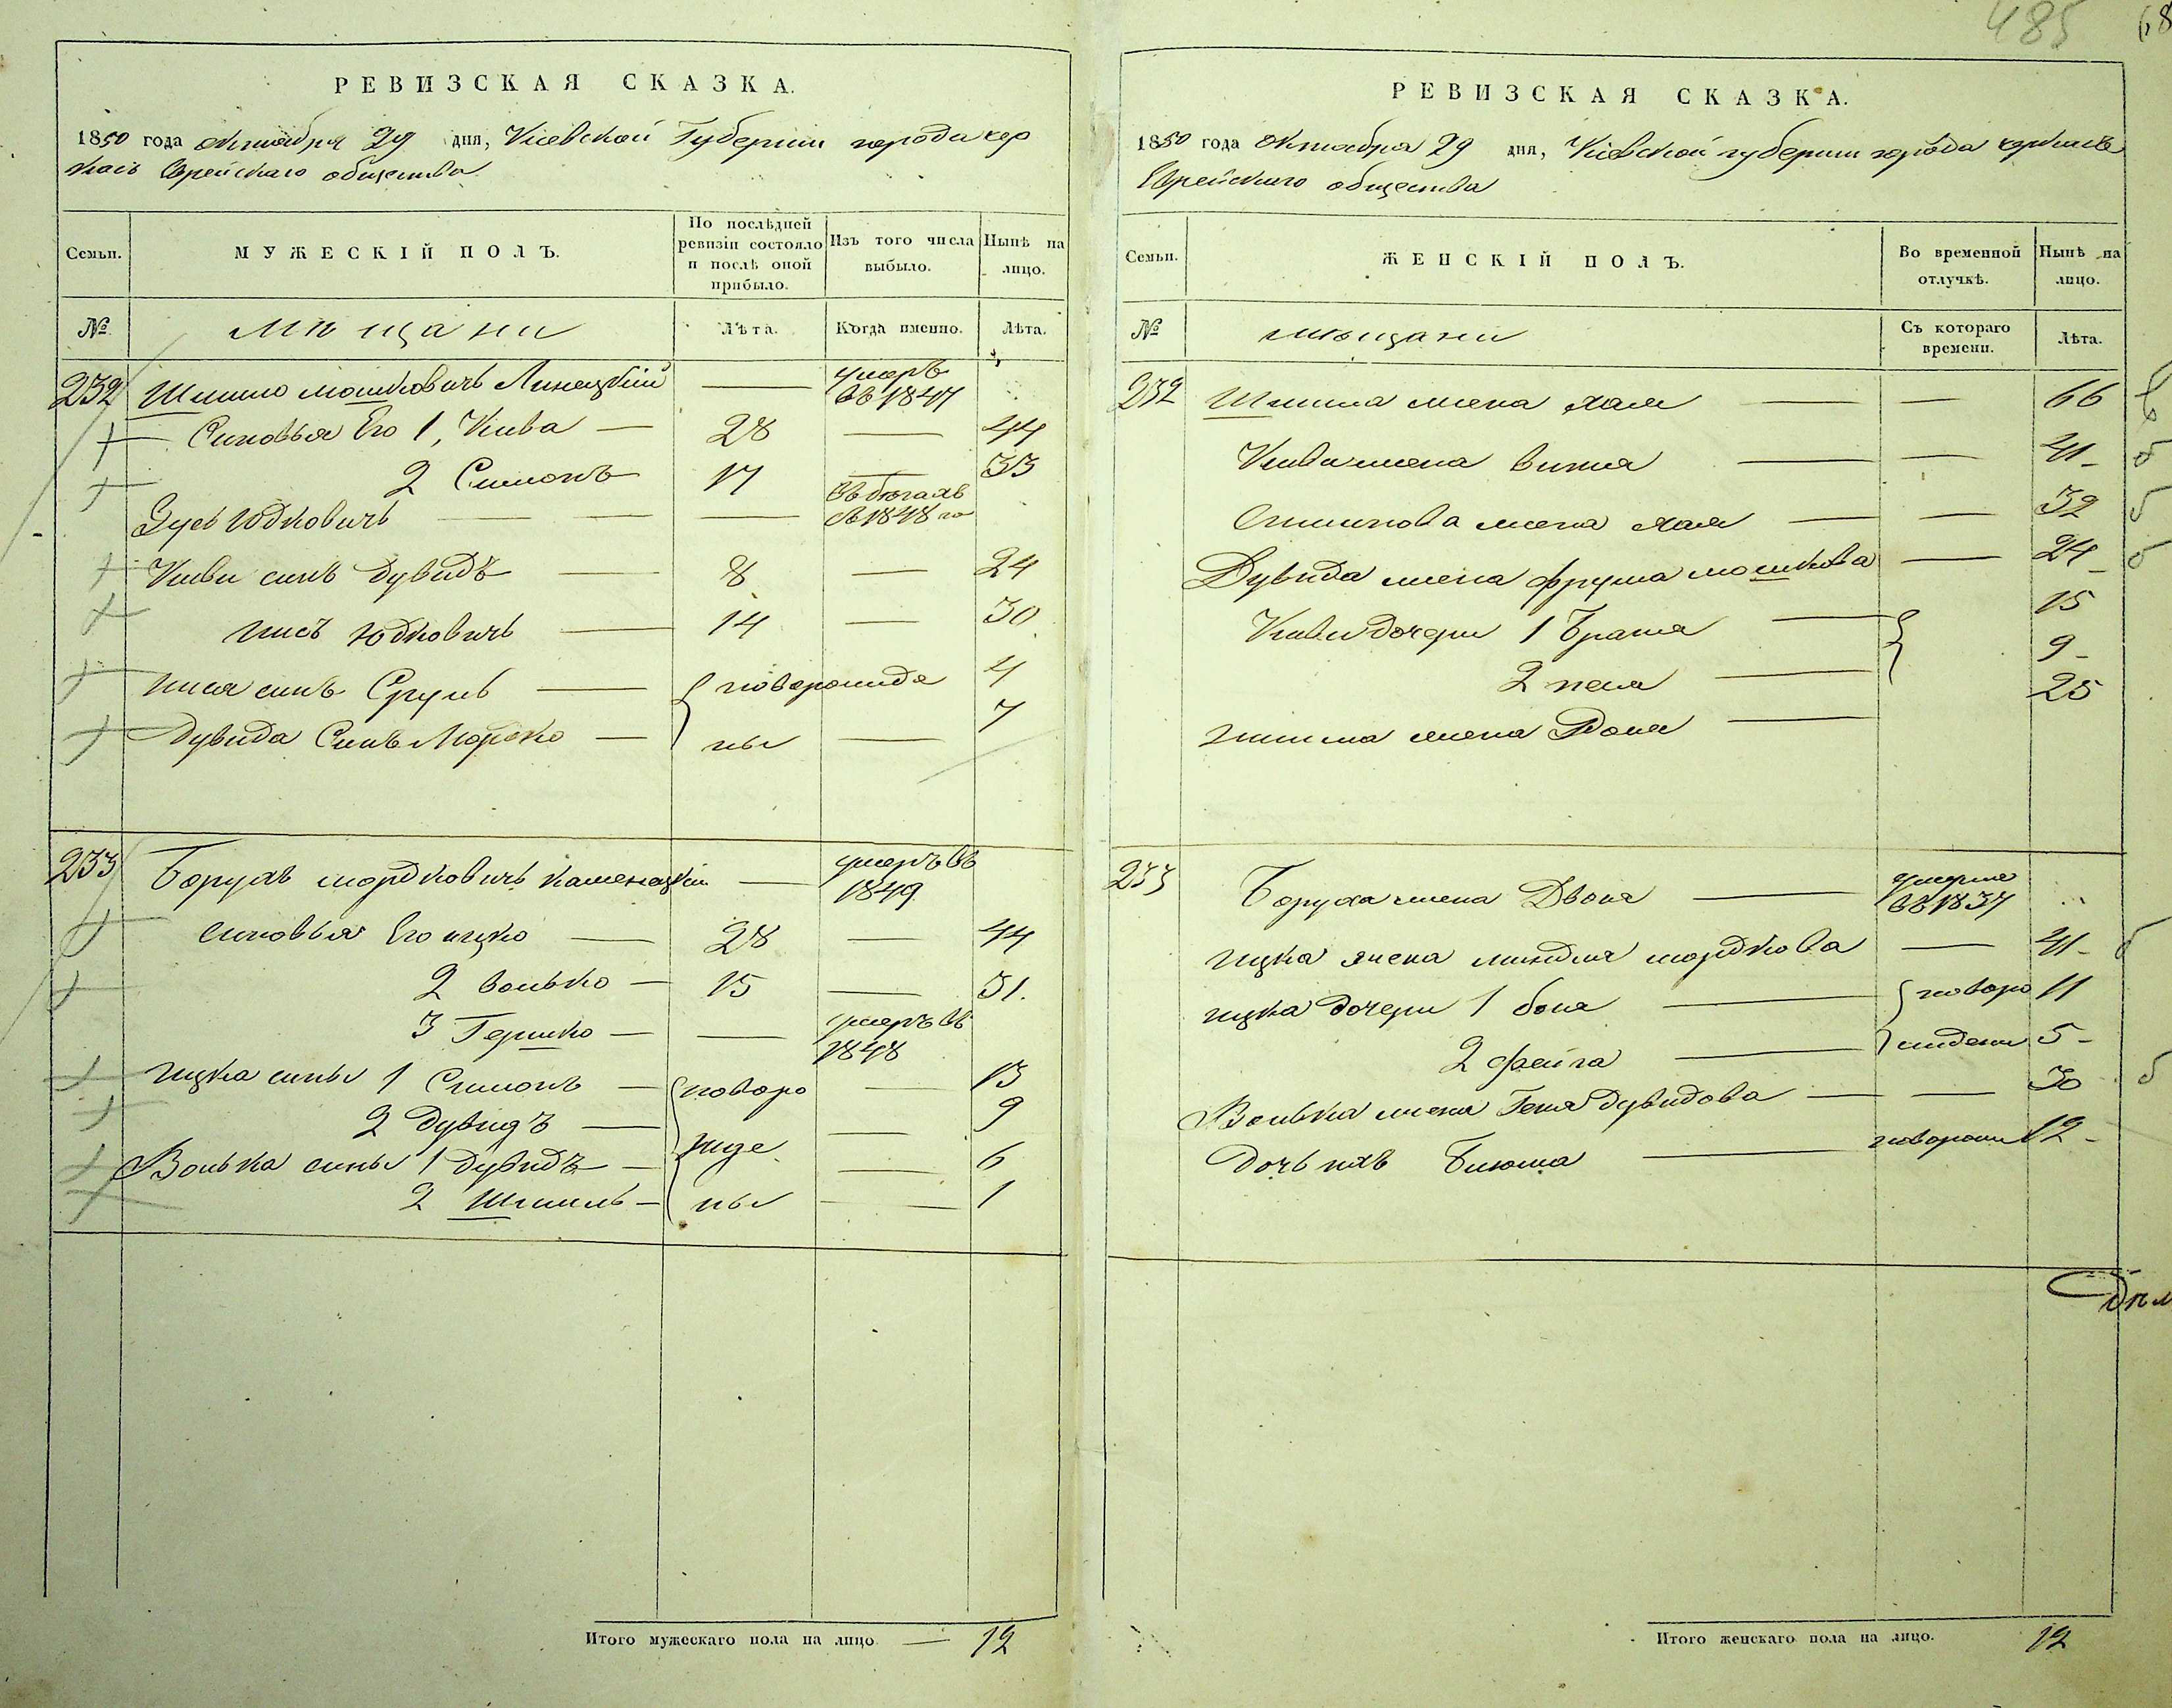 485 68
РЕВИЗСКАЯ СКАЗКА.
1850 года октября 29 дня, Кіевской Губерніи города чер
касъ Еврейскаго общества
Семьи.
МУЖЕСКІЙ ПОЛЪ.
По послѣдней
ревизіи состояло
и послѣ оной
прибыло.
Изъ того числа
выбыло.
Нынѣ на
лицо.
№
Мѣщани
Лѣта.
Когда именно.
Лѣта.
232 Шлиомо мошковичъ Линецкій — умеръ
въ 1847
Сыновья Его 1, Кива — 28 — 44
2 Симонъ 17 — 33
Зусь Юдковичъ — — — въ бегахъ
съ 1848 го
Киви сынъ Дувидъ — 8 — 24
юдковичъ — 14 — 30
сынъ Сруль — новорожде 4
Дувида Сынъ Мордко — ны — 7
233 Борухъ мордковичъ каменецкій — умеръ въ
1849
сыновья Его ицко — 28 — 44
2 волько — 15 — 31.
3 Гершко — — умеръ въ
1848
ицка сыны 1 Симонъ — новоро — 13
2 Дувидъ — — 9
жде
Волька сыны 1 Дувидъ — — 6
2 Шмиль — ны — 1
Итого мужескаго пола на лицо. — 12
РЕВИЗСКАЯ СКАЗКА.
1850 года октября 29 дня, Кіевской губерніи города черкасъ
Еврейскаго общества
Семьи.
ЖЕНСКІЙ ПОЛЪ.
Во временной
отлучкѣ.
Нынѣ на
лицо.
№
мѣщани
Съ котораго
времени.
Лѣта.
232 жена хая — — 66
Киви жена — — 41
Симонова жена хая — — 32
Дувида жена фрума мошкова — 24
Киви дочери 1 Брана — 15
2 песя — 9
жена — 25
233 Боруха жена Двося — умерла
въ 1837
ицка жена миндля мордкова — 41
ицка дочери 1 бося — новоро 11
2 фейга — жденн 5
Волька жена Геня Дувидова — — 30
Дочь ихъ Блюма — новорожн 12
Итого женскаго пола на лицо. 12